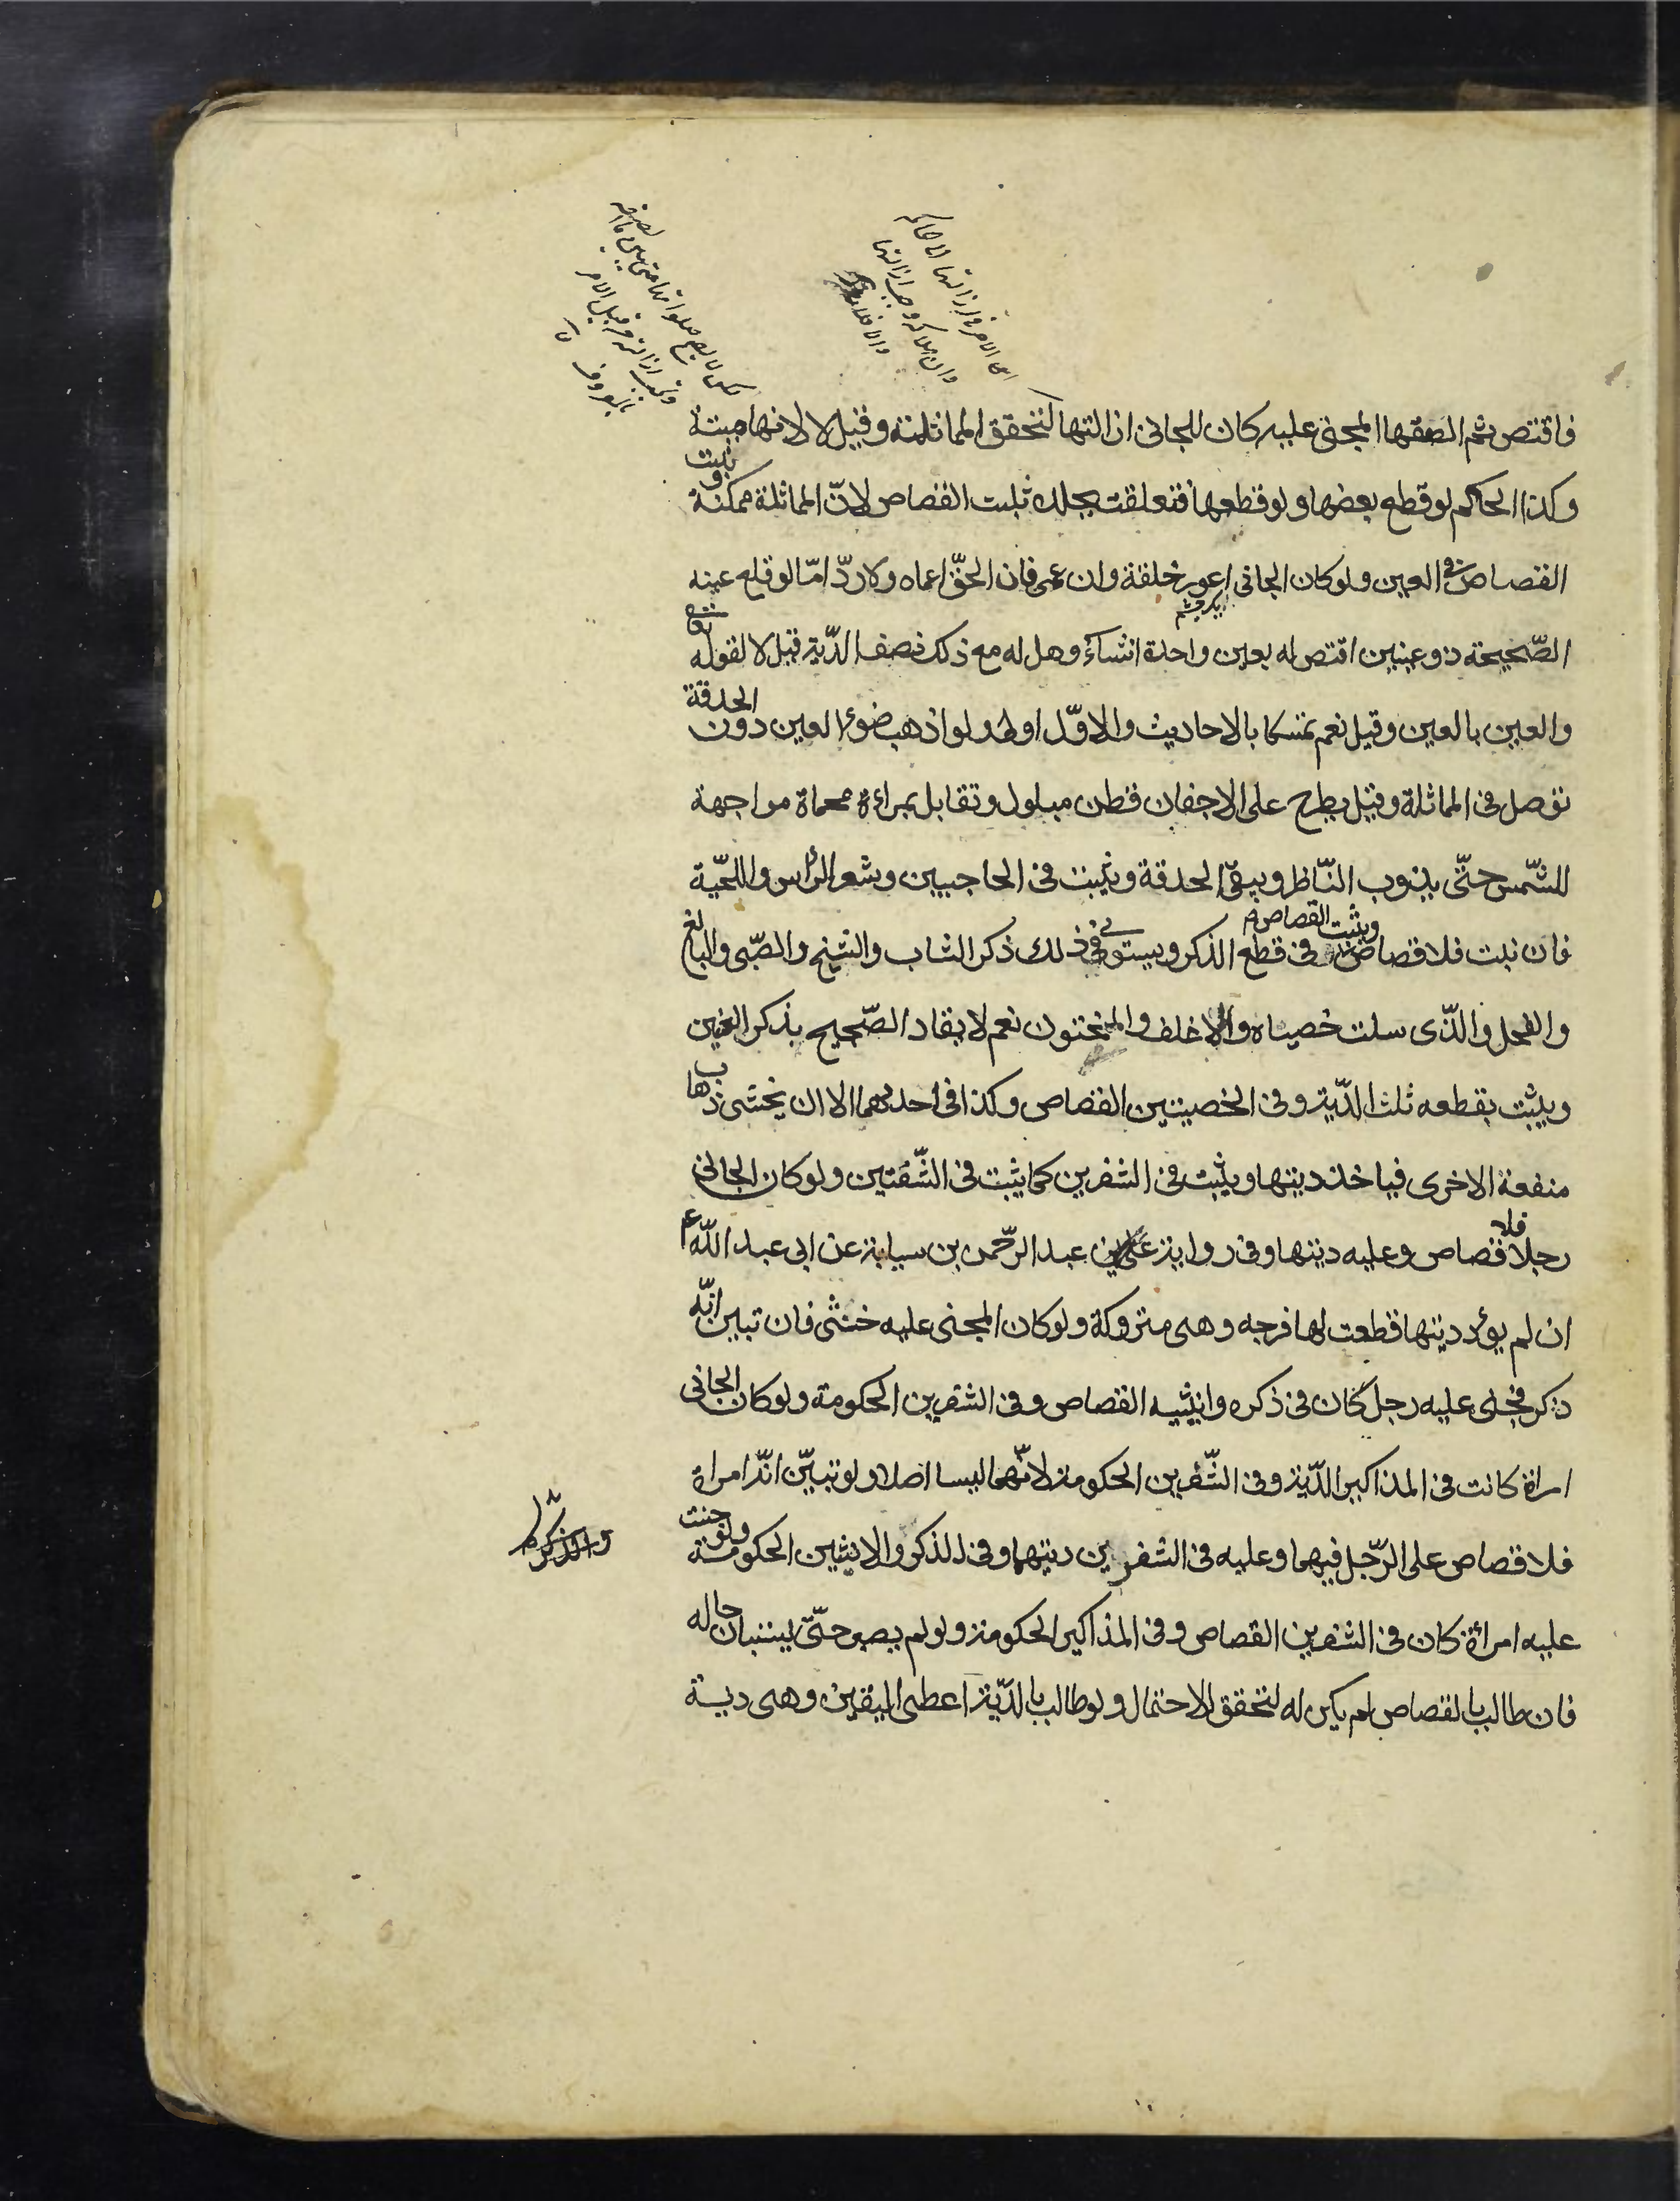 فاقتص ثم الصقها المجنى عليه كان للجانى ازالتها لتحقق المماثلة وقيل لا لانها ميتة
وكذا الحكم لو قطع بعضها ولو قطعها فتعلقت بجلده ثبت القصاص لانّ المماثلة ممكنة ويثبت
القصاص فى العين ولو كان الجانى اعور خلقة وان عمى فان الحقّ اعماه ولا ردّ امّا لو قلع عينه
الصّحيحة ذو عينين اقتص له بعين واحدة انشاء وهل له مع ذلك نصف الدّية قيل لا لقوله تعالى
والعين بالعين وقيل نعم تمسكا بالاحاديث والاوّل اولى ولو اذهب ضوء العين دون الحدقة
توصل فى المماثلة وقيل يطرح على الاجفان قطن مبلول وتقابل بمراءة محماة مواجهة
للشّمس حتّى يذوب النّاظر ويبقى الحدقة ويثبت فى الحاجبين وشعر الرّاس واللّحية
فان نبت فلا قصاص ويثبت القصاص فى قطع الذكر ويستوى فى ذلك ذكر الشاب والشيخ والصّبى والبالغ
والفحل والّذى سلت خصيتاه والاغلف والمختون نعم لا يقاد الصّحيح بذكر العنين
ويثبت بقطعه ثلث الدّية وفى الخصيتين القصاص وكذا فى احدهما الا ان يخشى ذهاب
منفعة الاخرى فياخذ ديتها ويثبت فى الشفرين كما يثبت فى الشّفتين ولو كان الجانى
رجلا فلا قصاص وعليه ديتها وفى رواية عبد الرّحمن بن سيابة عن ابى عبد اللّه ع
ان لم يؤد ديتها قطعت لها فرجه وهى متروكة ولو كان المجنى عليه خنثى فان تبين انّه
ذكر فجنى عليه رجل كان فى ذكره وانثييه القصاص وفى الشفرين الحكومة ولو كان الجانى
امراة كانت فى المذاكير الدّية وفى الشّفرين الحكومة لانّهما ليسا اصلا ولو تبيّن انّه امراة
فلا قصاص على الرّجل فيهما وعليه فى الشفرين ديتهما وفى الذكر والانثيين الحكومة ولو جنت
عليه امرأة كان فى الشفرين القصاص وفى المذاكير الحكومة ولو لم يصبر حتّى يستبان حاله
فان طالب بالقصاص لم يكن له لتحقق الاحتمال ولو طالب بالدّية اعطى اليقين وهى دية